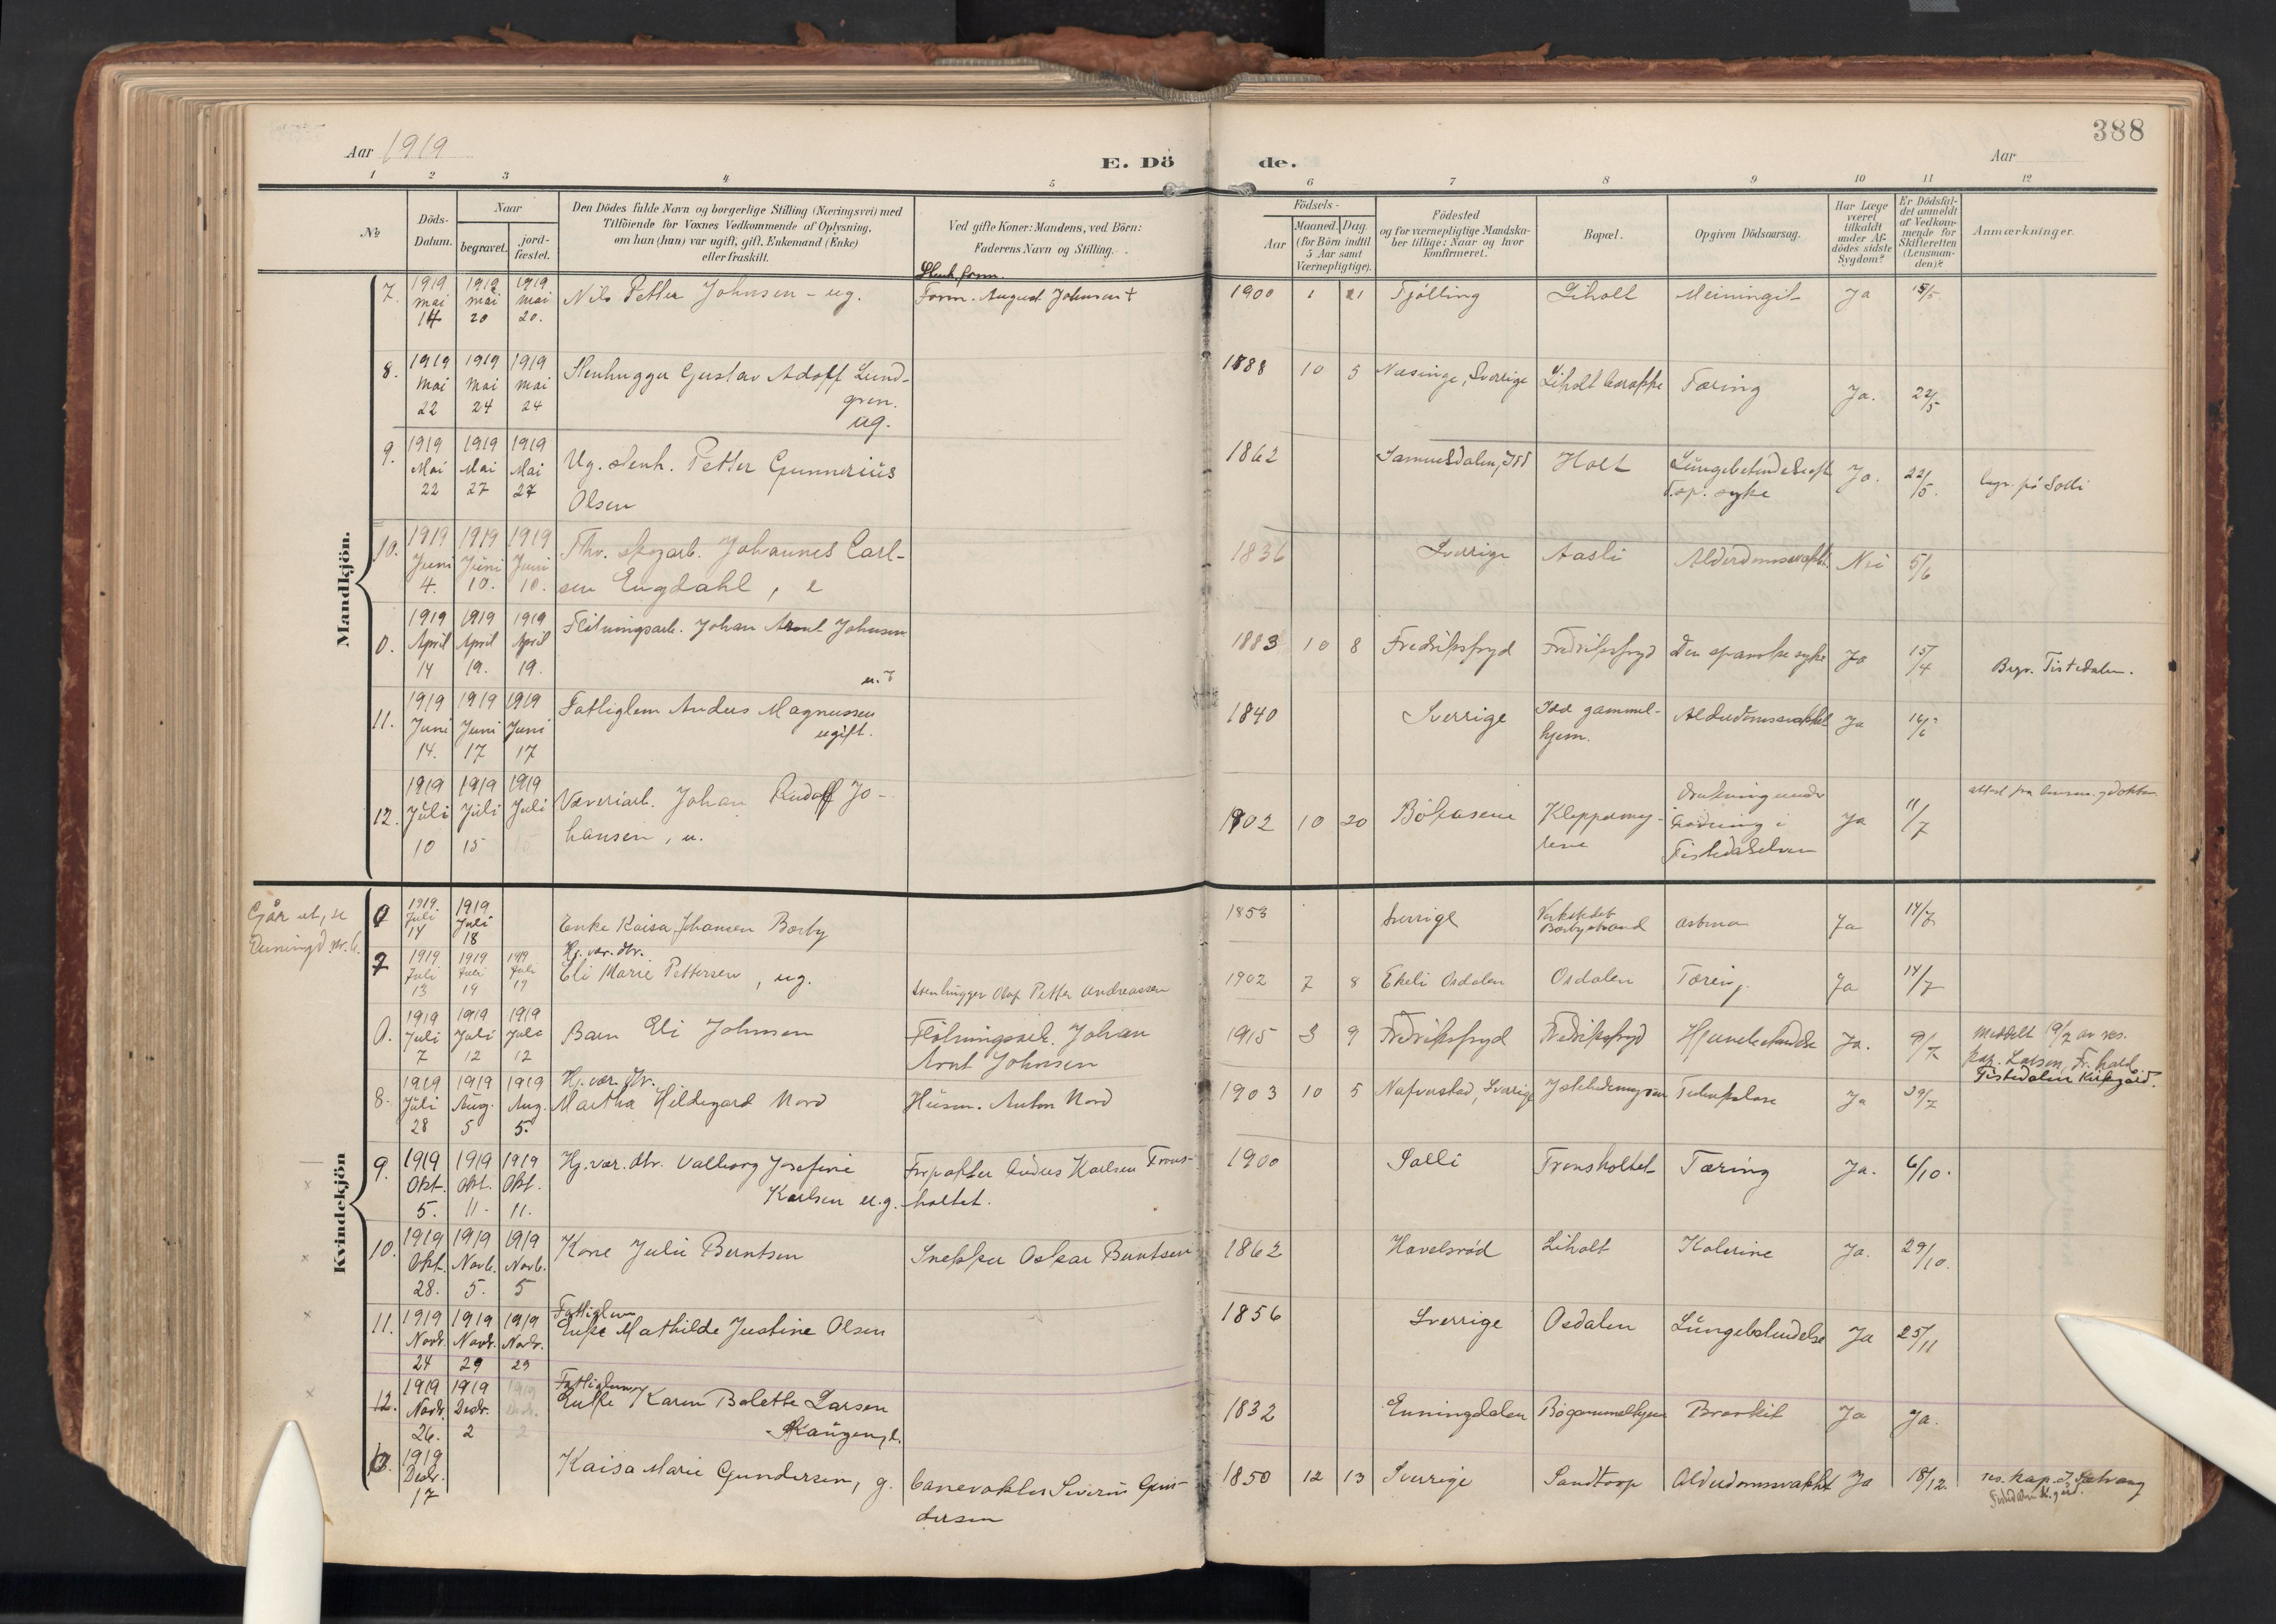 388
Aar 1919
E. Dö de.
Aar
1 2 3 4 5 6 7 8 9 10 11 12
№
Döds-
Datum.
Naar
begravet.
jord-
fæstet.
Den Dödes fulde Navn og borgerlige Stilling (Næringsvei) med
Tilföiende for Voxnes Vedkommende af Oplysning,
om han (hun) var ugift, gift, Enkemand (Enke)
eller fraskilt.
Ved gifte Koner: Mandens, ved Börn:
Faderens Navn og Stilling.
Födsels-
Aar
Maaned. Dag.
(for Börn indtil
5 Aar samt
Værnepligtige).
Födested
og for værnepligtige Mandska-
ber tillige: Naar og hvor
konfirmeret.
Bopæl.
Opgiven Dödsaarsag.
Har Læge
været
tilkaldt
under Af-
dödes sidste
Sygdom?
Er Dödsfal-
det anmeldt
af Vedkom-
mende for
Skifteretten
(Lensman-
den)?
Anmærkninger.
Mandkjön.
7. 1919 mai 14 1919 mai 20 1919 mai 20. Nils Petter Johnsen - ug. Form. August Johnsen + 1900 1 21 Tjølling Liholt Meiningit Ja 15/5
8. 1919 mai 22 1919 mai 24 1919 mai 24 Stenhugger Gustav Adolf Lund-
gren.
ug. 1888 10 5 Næsinge, Sverrige Liholt barakke Tæring Ja. 22/5
9. 1919 Mai 22 1919 Mai 27 1919 Mai 27 Ug. stenh. Petter Gunnerius
Olsen 1862 Samuelsdalen, Idd Holt Lungebetendelse eft.
d. sp. syke Ja. 22/5. begr. på Solli
10. 1919 Juni 4. 1919 Juni 10. 1919 Juni 10. Fhv. skogarb. Johannes Carl-
sen Engdahl, e 1836 Sverrige Aasli Alderdomssvakhet. Nei 5/6
0. 1919 April 14 1919 April 19. 1919 April 19. Flötningsarb. Johan Arnt Johnsen 1883 10 8 Fredriksfryd Fredriksfryd Den spanske syke Ja 15/4 Begr. Tistedalen.
11. 1919 Juni 14. 1919 Juni 17 1919 Juni 17 Fattiglem Anders Magnussen
ugift. 1840 Sverrige Idd gammel-
hjem. Alderdomssvakhet Ja 16/6
12. 1919 Juli 10 1919 Juli 15 1919 Juli 15 Væveriarb. Johan Rudolf Jo-
hansen, u. 1902 10 20 Bökåsene Kleppermy-
rene Drukning under
badning i
Tistedalselven Ja 11/7
Kvindekjön
Går ut, se
Enningd. nr. 6.
0 1919 Juli 14 1919 Juli 18 Enke Kaisa Johansen Borby 1853 Sverrige Verkstedet
Borbystrand astma Ja 14/7
7 1919 Juli 13 1919 Juli 19 1919 Juli 19 Hj. vær. dtr.
Eli Marie Pettersen, ug. Stenhugger Olof Petter Andreassen 1902 7 8 Ekeli Osdalen Osdalen Tæring. Ja 14/7
0. 1919 Juli 7 1919 Juli 12 1919 Juli 12 Barn Eli Johnsen Flötningsarb. Johan
Arnt Johnsen 1915 3 9 Fredriksfryd Fredriksfryd Hjernebetændelse Ja. 9/7 Meddelt 19/7 av res.
kap. Larsen, Fr.hald.
Tistedalen Kirkegård.
8. 1919 Juli 28 1919 Aug. 5 1919 Aug. 5. Hj. vær. dtr.
Martha Hildegard Nord Husm. Anton Nord 1903 10 5 Naverstad, Sverrige Tuberkulose Ja 29/7
9. 1919 Okt. 5. 1919 Okt. 11. 1919 Okt. 11. Hj. vær. dtr. Valborg Josefine
Karlsen ug. Forpakter Anders Karlsen Trons-
holtet. 1900 Solli Tronsholtet Tæring Ja. 6/10.
10. 1919 Okt. 28. 1919 Novb. 5. 1919 Novb. 5 Kone Julie Berntsen Snekker Oskar Berntsen 1862 Havelsrød Liholt Kolerine Ja. 29/10.
11. 1919 Novb. 24 1919 Novb. 29 1919 Novb. 29 Fattiglem
Enke Mathilde Justine Olsen 1856 Sverrige Osdalen Lungebetendelse Ja 25/11
12. 1919 Novb. 26. 1919 Decbr. 2 1919 Decbr. 2 Fattiglem
Enke Karen Bolette Larsen 1832 Enningdalen Bøgammelhjem Bronkit Ja Ja.
0. 1919 Decbr. 17 Kaisa Marie Gundersen, g. Banevokter Severin Gun-
dersen 1850 12 13 Sverrige Sandtorp Alderdomssvakhet Ja 18/12. res. kap.